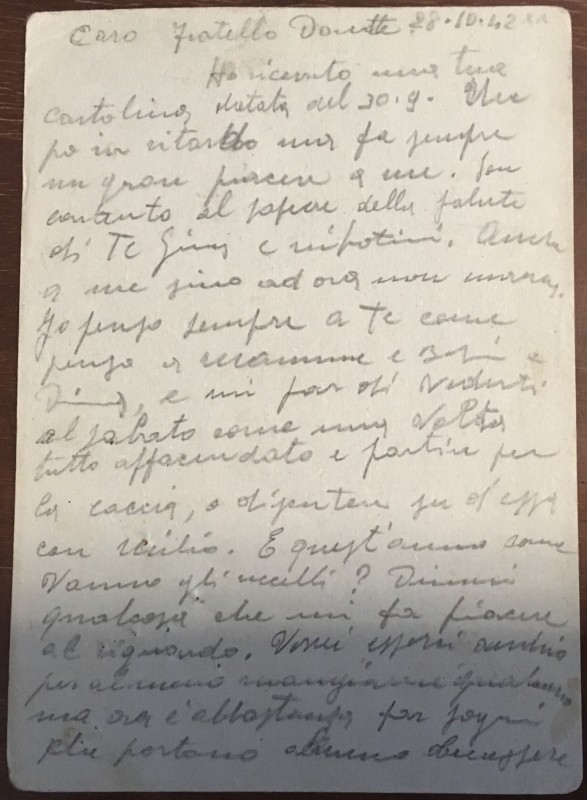 Caro Fratello Donatte. 28.10.42 XX
Ho ricevuto una tua
cartolina datata del 30.9. Un
po in ritardo ma fa sempre
un gran piacere a me. Son
contento al sapere della salute
di Te Gina e nipotini. Anche
a me sino ad ora non manca.
Io penso sempre a Te come
penso a mamma e e
Dina, e mi par di vederti
al sabato come una Volta
tutto affacendato e partir per
la caccia, o disputer su d'essa
con Ucilio. E quest'anno come
Vanno gli uccelli? Dimmi
qualcosa che mi fa piacere
al riguardo. Vorrei esserci anchio
per almeno mangiarne qualcuno
ma ora è abbastanza far sogni
che portano almeno